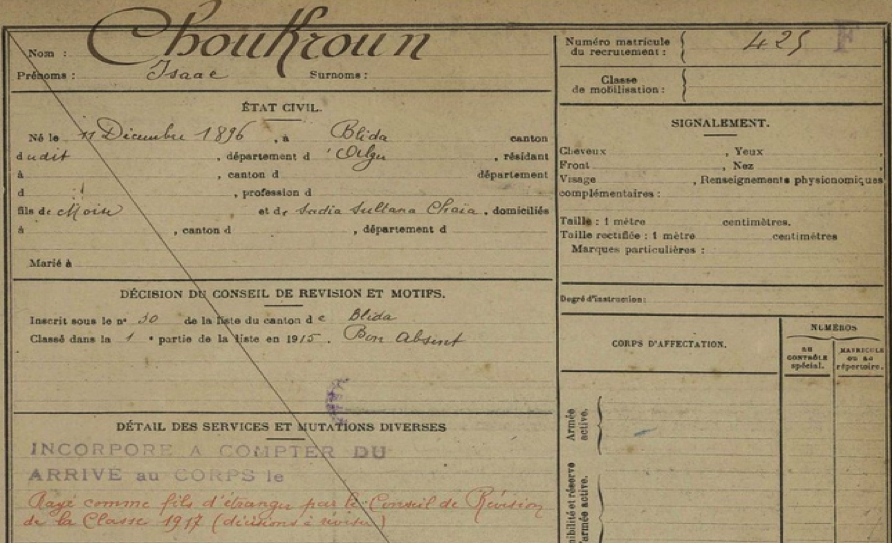 Nom : Choukroun
Prénoms : Isaac Surnoms :
ÉTAT CIVIL.
Né le 11 Décembre 1896, à Blida canton
dudit, département d'Alger, résidant
à , canton d département
d , profession d
fils de Moïse et de Sadia Sultana Chaïa, domiciliés
à , canton d , département d
Marié à
DÉCISION DU CONSEIL DE REVISION ET MOTIFS.
Inscrit sous le n° 30 de la liste du canton de Blida
Classé dans la 1e partie de la liste en 1915. Bon absent
DÉTAIL DES SERVICES ET MUTATIONS DIVERSES
INCORPORE A COMPTER DU
ARRIVE au CORPS le
Rayé comme fils d'étranger par le Conseil de Révision
de la Classe 1917 (décisions à réviser)
Numéro matricule
du recrutement : 425 F
Classe
de mobilisation :
SIGNALEMENT.
Cheveux , Yeux ,
Front , Nez ,
Visage , Renseignements physionomiques
complémentaires :
Taille : 1 mètre centimètres.
Taille rectifiée : 1 mètre centimètres
Marques particulières :
Degré d'instruction :
CORPS D'AFFECTATION.
NUMÉROS
AU
CONTRÔLE
spécial.
MATRICULE
OU AU
répertoire.
Armée
active.
nibilité et réserve
l'armée active.